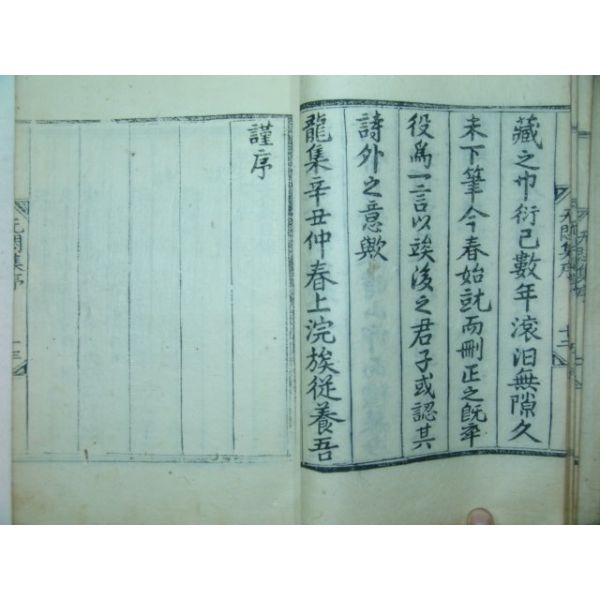 藏之巾衍已數年滾汩無隙久
未下筆今春始就而刪正之旣卒
役爲一言以竢後之君子或認其
詩外之意歟
龍集辛丑仲春上浣族從養吾
謹序
无悶集序
十二
无悶集序
十三